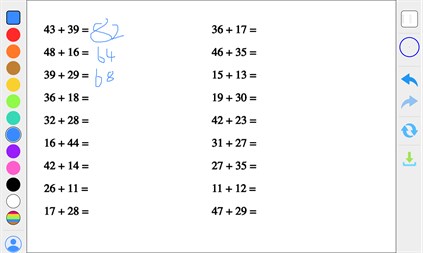 43 + 39 = 82
48 + 16 = 64
39 + 29 = 68
36 + 18 =
32 + 28 =
16 + 44 =
42 + 14 =
26 + 11 =
17 + 28 =
36 + 17 =
46 + 35 =
15 + 13 =
19 + 30 =
42 + 23 =
31 + 27 =
27 + 35 =
11 + 12 =
47 + 29 =